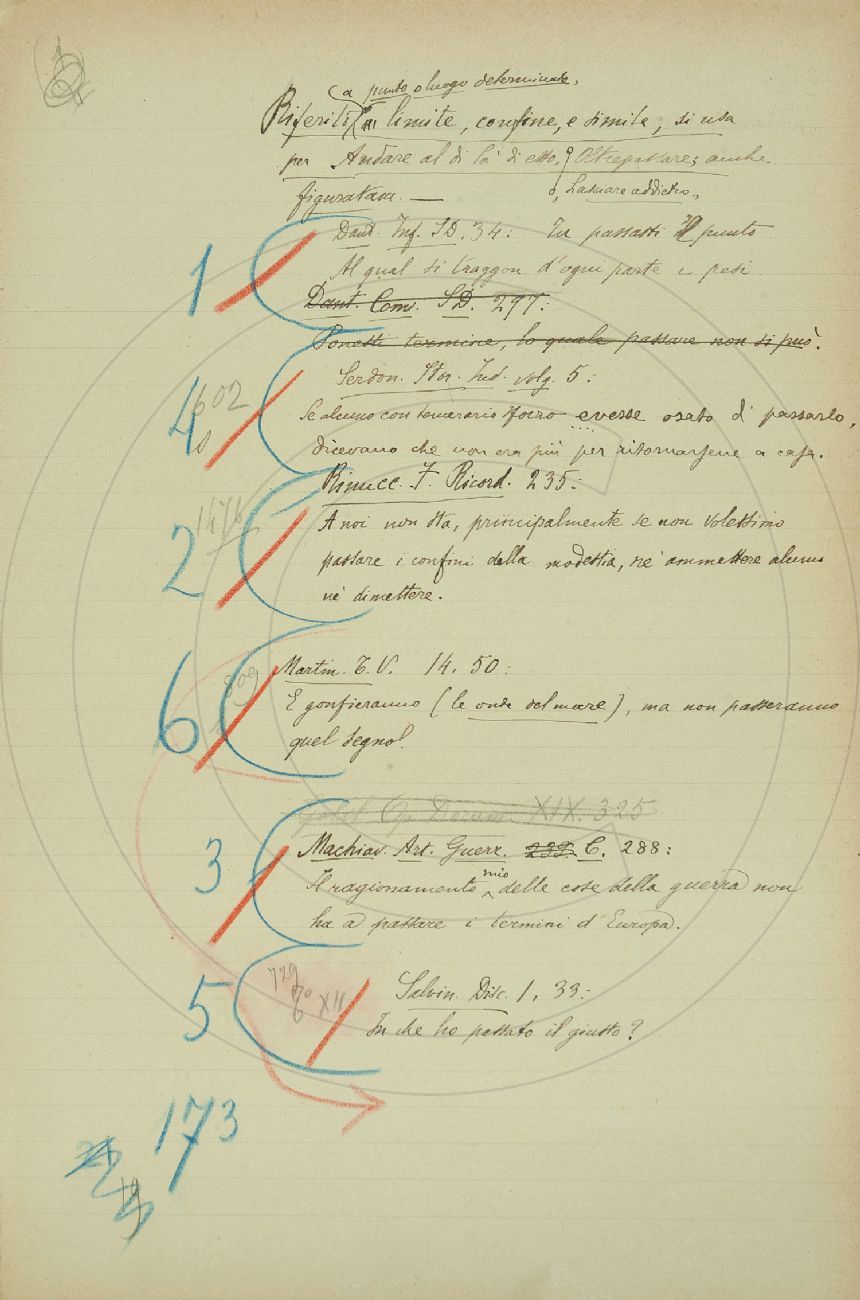 a punto o luogo determinato,
Riferiti limite, confine, e simile, si usa
per Andare al di là di esso, Oltrepassare; anche
o, Lasciare addietro,
figuratam. —
Dant. Inf. SD. 34: Tu passasti il punto
Al qual si traggon d'ogni parte i pesi.
1
Dant. Conv. SD. 297:
Ponesti termine, lo quale passare non si può.
Serdon. Stor. Ind. volg. 5:
4 602
Se alcuno con temerario sforzo avesse osato di passarlo,
dicevano che non era più per ritornarsene a casa.
Rinucc. F. Ricord. 235:
1476
A noi non sta, principalmente se non volessimo
2
passare i confini della modestia, nè ammettere alcuno
nè dimettere.
Martin. T. V. 14. 50:
6 809
E gonfieranno (le onde del mare), ma non passeranno
quel segnol.
XIX. 325
Machiav. Art. Guerr. 239. C. 288:
3
Il ragionamento mio delle cose della guerra non
ha a passare i termini d'Europa.
729
XII
Salvin. Disc. 1, 33:
5
In che ho passato il giusto?
173
19